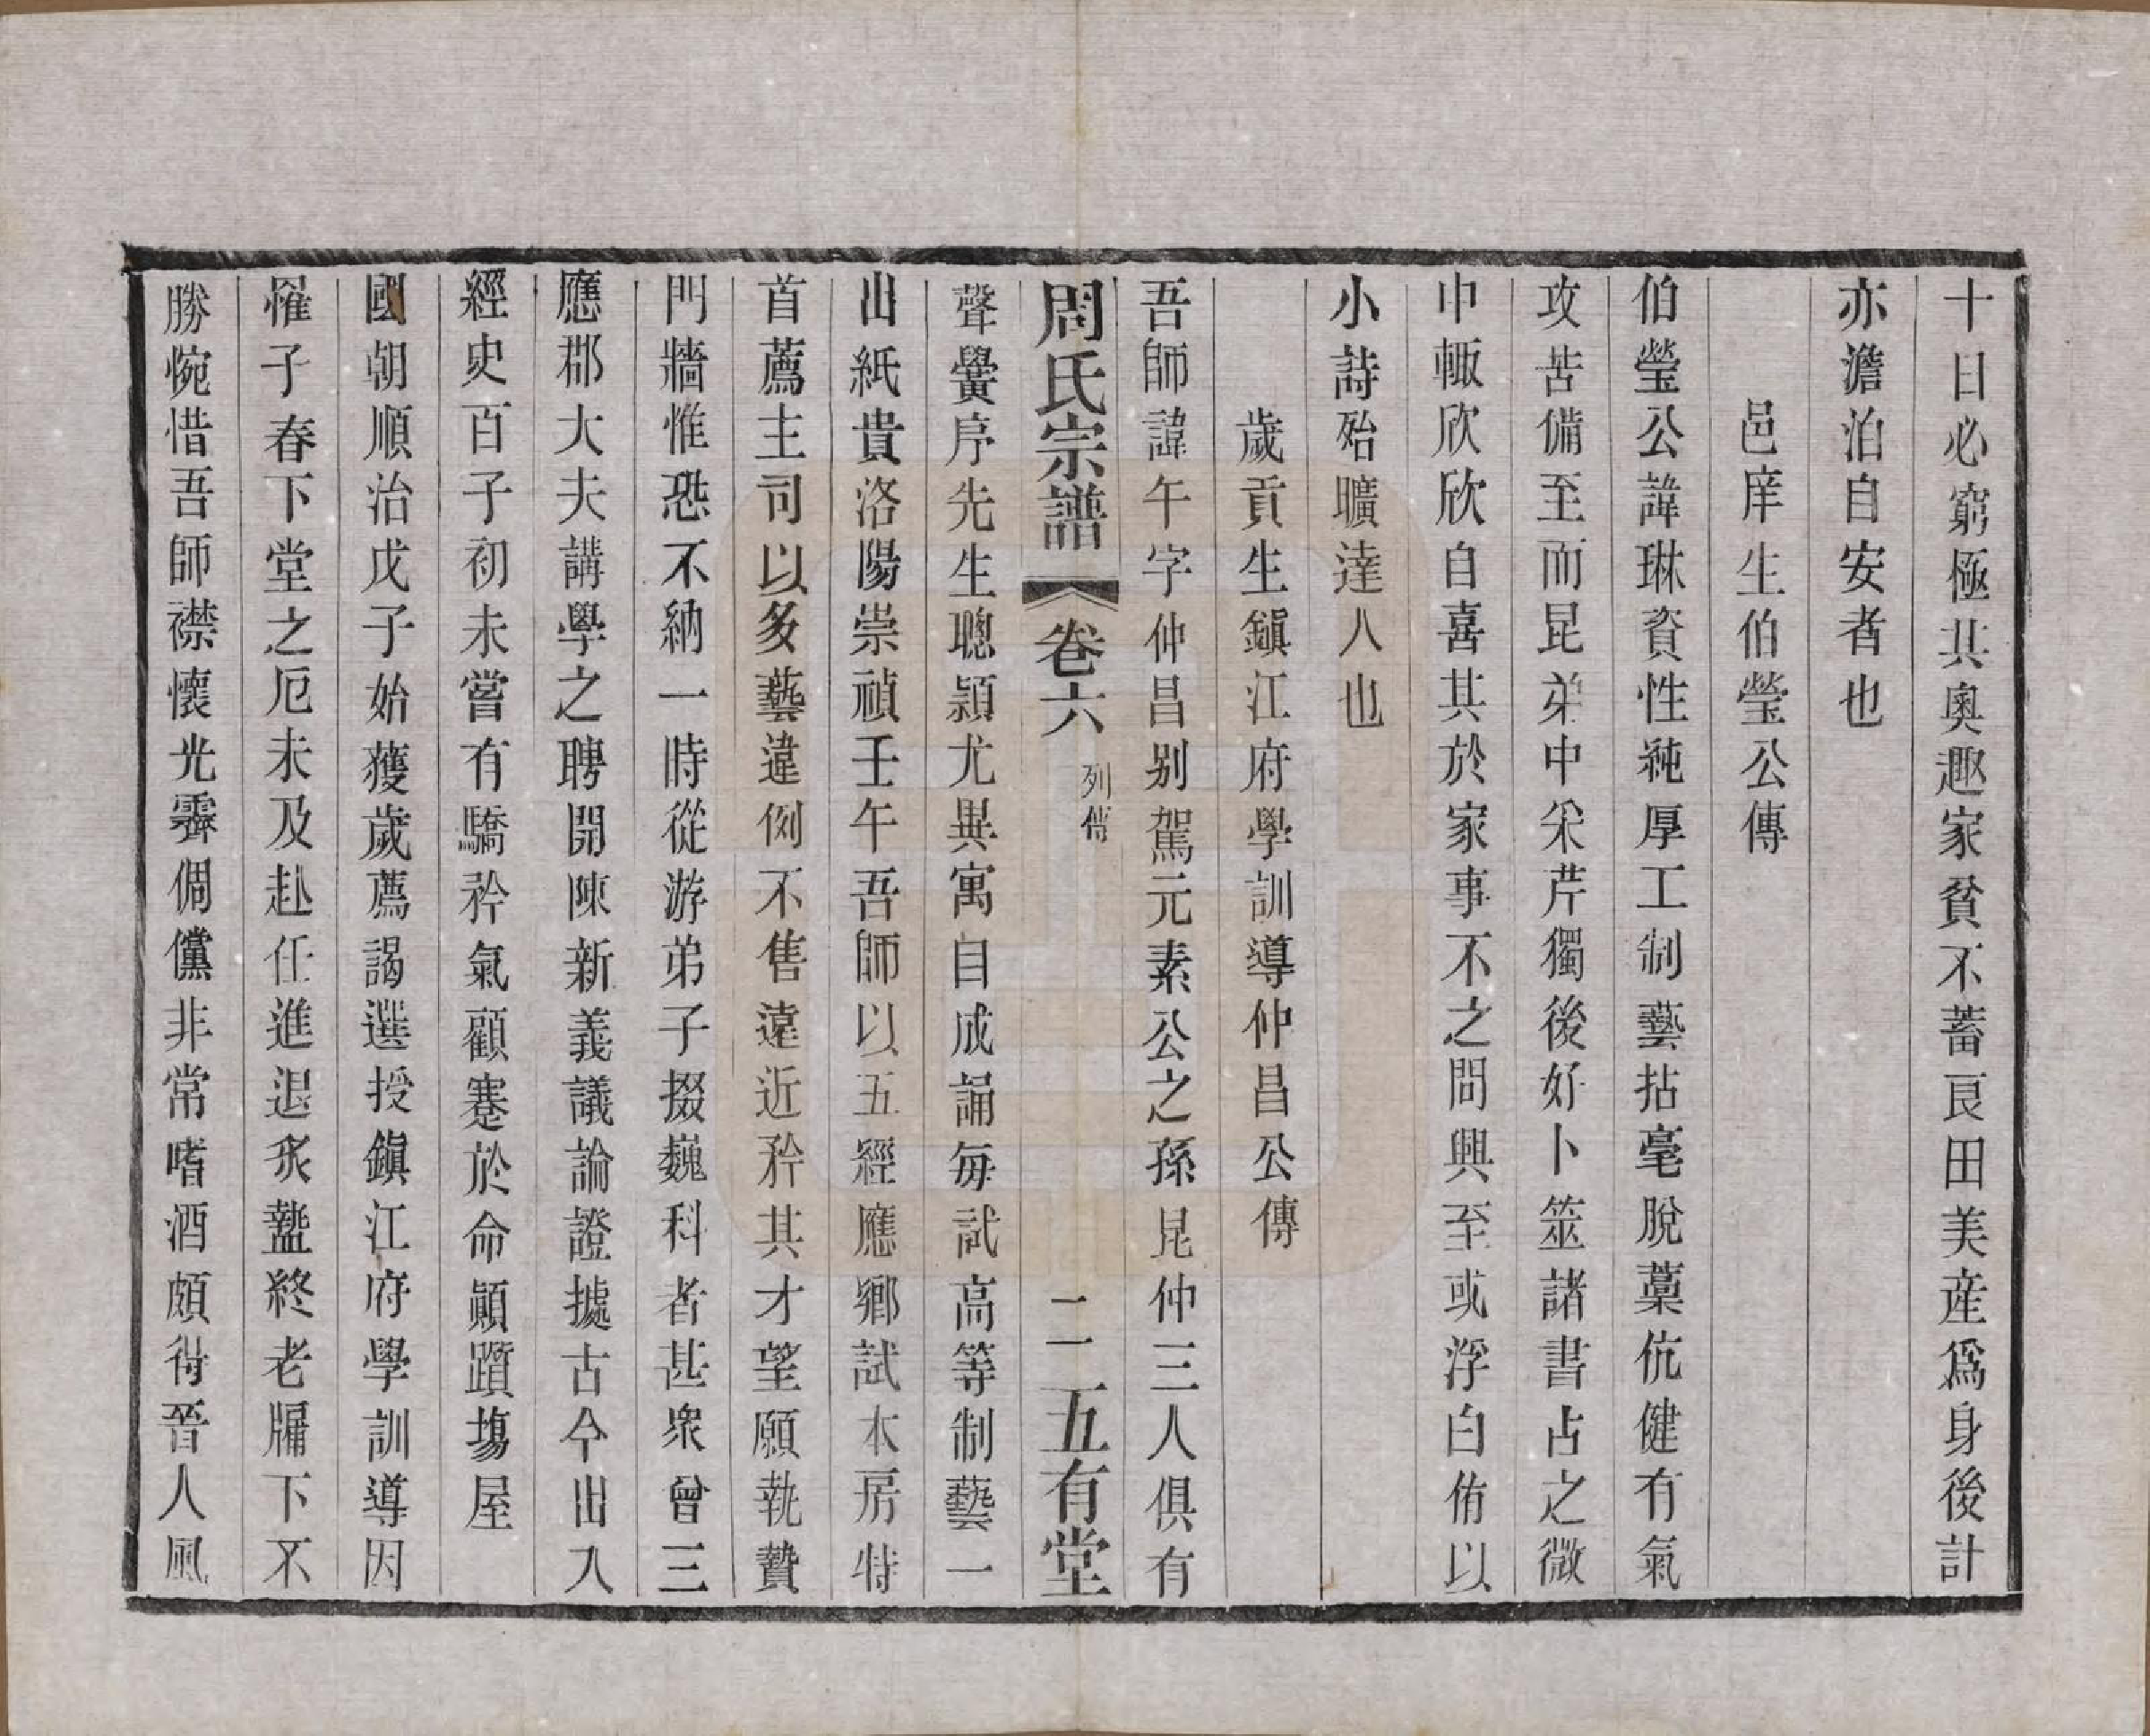 十日必窮極其奥趣家貧不蓄良田美産爲身後計
亦澹泊自安者也
邑庠生伯瑩公傳
伯瑩公諱琳資性純厚工制藝拈毫脫藁伉健有氣
攻苦備至而昆弟中采芹獨後好卜筮諸書占之微
中輒欣欣自喜其於家事不之問興至或浮白侑以
小詩殆曠達人也
歲貢生鎭江府學訓導仲昌公傳
吾師諱午字仲昌别駕元素公之孫昆仲三人俱有
周氏宗譜 卷六 列傳 二 五有堂
聲黌序先生聰頴尤異寓目成誦每試高等制藝一
出紙貴洛陽崇禎壬午吾師以五經應鄉試本房特
首薦主司以多藝違例不售遠近矜其才望願執贄
門牆惟恐不納一時從游弟子掇巍科者甚衆曾三
應郡大夫講學之聘開陳新義議論證據古今出入
經史百子初未嘗有驕矜氣顧蹇於命顚躓塲屋
國朝順治戊子始獲歲薦謁選授鎭江府學訓導因
罹子春下堂之厄未及赴任進退炙盭終老牖下不
勝惋惜吾師襟懷光霽倜儻非常嗜酒頗得晉人風